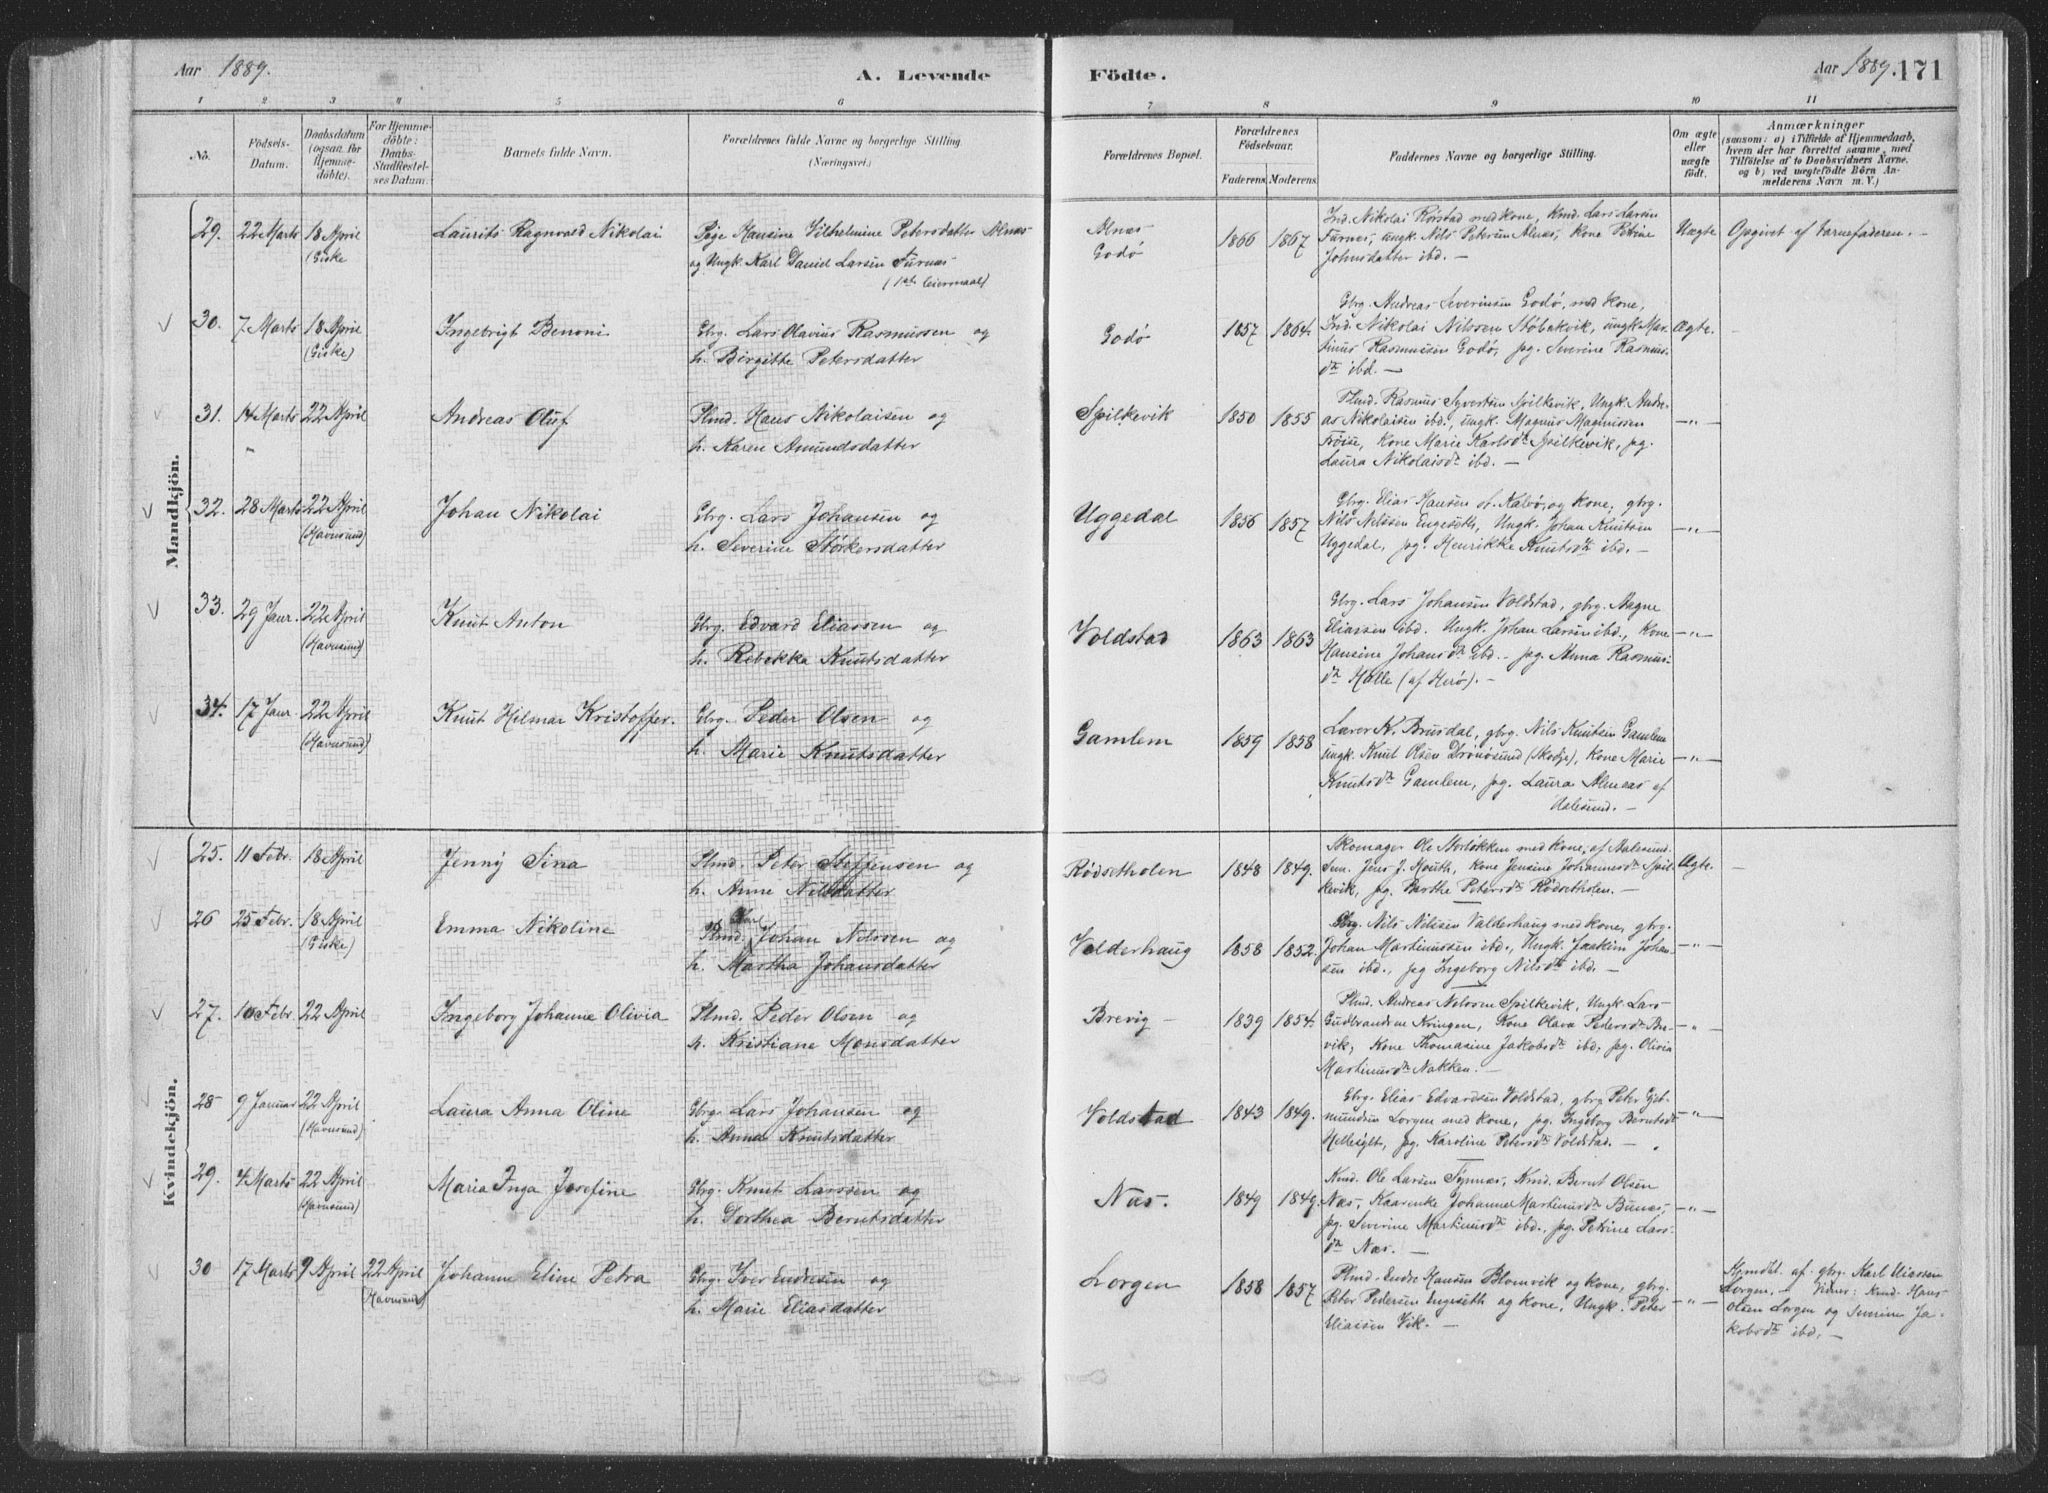 Aar 1889.
A. Levende
Födte.
Aar 1889. 171
1 2 3 4 5 6 7 8 9 10 11
No.
Födsels-
Datum.
Daabsdatum
(ogsaa for
Hjemme-
döbte).
For Hjemme-
döbte:
Daabs-
Stadfæstel-
ses Datum.
Barnets fulde Navn.
Forældrenes fulde Navne og borgerlige Stilling.
(Næringsvei.)
Forældrenes Bopæl.
Forældrenes
Födselsaar.
Faderens. Moderens.
Faddernes Navne og borgerlige Stilling.
Om ægte
eller
uægte
født.
Anmærkninger
(saasom: a) i Tilfælde af Hjemmedaab,
hvem der har forrettet samme, med
Tilföielse af to Daabsvidners Navne.
og b) ved uægtefødte Börn An-
melderens Navn m. V.)
Mandkjön.
29. 22 Marts 18 April
(Giske
Laurits Ragnvald Nikolai
Pige Hansine Vilhelmine Petersdatter Alnæs
og Ungk. Karl Daniel Larsen Furnæs
(1ste leiermaal)
Alnæs
Godø
1866 1867
Ind. Nikolai Rørstad med kone, Kmd. Lars Larsen
Furnes, ungk. Nils Petersen Alnæs, Kone Petrine
Johnsdatter ibd. —
Uægte
Opgivet af barnefaderen. —
30. 7 Marts 18 April
(Giske)
Ingebrigt Benoni
Gbrg. Lars Olavius Rasmussen og
h. Birgitte Petersdatter
Godø
1857 1864.
Gbrg. Andreas Severinsen Godø, med kone,
Ind. Nikolai Nilssen Støbakvik, ungk Mar-
tinus Rasmussen Godø, pg. Severine Rasmus-
dtr ibd. —
Ægte.
—
31. 14 Marts 22 April
Andreas Oluf
Plmd. Hans Nikolaisen og
h. Karen Amundsdatter
Spilkevik
1850 1855
Plmd. Rasmus Syvertsen Spilkevik, Ungk. Andre-
as Nikolaisen ibd., ungk. Magnus Magnussen
Frøise, Kone Marie Karlsdtr Spilkevik, pg.
Laura Nikolaisdtr ibd. —
—"—
32. 28 Marts 22 April
(Havnsund)
Johan Nikolai
Gbrg. Lars Johansen og
h. Severine Størkersdatter
Uggedal
1856 1857
Gbrg. Elias Hansen st. Kalvø, og kone, gbrg.
Nils Nilssen Engeseth, Ungk. Johan Knutsen
Uggedal, pg. Henrikke Knutsdtr ibd. —
—"—
33. 29 Janr. 22 April
(Havnsund)
Knut Anton
Gbrg. Edvard Eliassen og
h. Rebekka Knutsdatter
Voldstad
1863 1863
Gbrg. Lars Johansen Voldstad, gbrg. Magne
Eliassen ibd. Ungk. Johan Larsen ibd., Kone
Hansine Johansdtr ibd. - pg. Anna Rasmus-
dtr Halle (af Herø). —
—"—
34. 17 Janr. 22 April
(Havnsund)
Knut Hilmar Kristoffer.
Gbrg. Peder Olsen og
h. Marie Knutsdatter
Gamlem
1859 1858
Lærer K. Brusdal, gbrg. Nils Knutsen Gamlem
ungk. Knut Olsen Dronøsund (Skodje), Kone Marie
Knutsdtr Gamlem, pg. Laura Almaas af
Aalesund. —
—"—
Kvindekjön.
25. 11 Febr. 18 April
Jenny Sina
Plmd. Peter Steffensen og
h. Anne Nilsdatter
Rødsetholen
1848 1849.
Skomager Ole Storløkken med kone, af Aalesund.
Sem. Jens J. Houth, Kone Jensine Johannesdtr Spil-
kevik, pg. Barthe Petersdtr Rødsetholen. —
Ægte.
—
26 25 Febr. 18 April
(Giske)
Emma Nikoline
Plmd. Johan Nilssen og
h. Martha Johansdatter
Valderhaug
1858 1852.
Gbrg. Nils Nilssen Valderhaug med kone, gbrg.
Johan Martinussen ibd., Ungk. Joakim Johan-
sen ibd., pg Ingeborg Nilsdtr ibd. —
—"—
27. 10 Febr. 22 April
Ingeborg Johanne Olivia
Plmd. Peder Olsen og
h. Kristiane Monsdatter
Brevig —
1839 1854.
Plmd. Andreas Nilssen Spilkevik, Ungk. Lars
Gudbrandsen Kringen, Kone Olava Pedersdtr Bre-
vik, Kone Thomasine Jakobsdtr ibd, pg. Olivia
Martinusdtr Nakken. —
—"
28 9 Januar 22 April
(Havnsund)
Laura Anna Oline
Gbrg. Lars Johansen og
h. Anna Knutsdatter
Voldstad
1843 1849.
Gbrg. Elias Edvardsen Voldstad, gbrg Peter Gud-
mundsen Lorgen med kone, pg. Ingeborg Berntsdtr
Hellesylt, pg. Karoline Petersdtr Voldstad. —
—"—
29. 4 Marts 22 April
(Havnsund)
Maria Inga Josefine
Gbrg. Knut Larssen og
h. Dorthea Berntsdatter
Næs.
1849 1849.
Kmd. Ole Larsen Tynnæs, Kmd. Bernt Olsen
Næs, Kaarenke Johanne Martinusdtr Bunæs,
pg. Severine Martinusdtr ibd., pg. Petrine Lars-
dtr Næs. —
—"—
30 17 Marts 9 April 22 April
(Havnsund)
Johanne Eline Petra
Gbrg. Iver Endresen og
h. Marie Eliasdatter
Lorgen
1858 1857
Plmd. Endre Hansen Blomvik og kone, gbrg.
Peter Pedersen Engeseth og kone, Ungk. Peter
Eliassen Vik. —
—"—
Hjmdbt. af gbrg. Karl Eliassen
Lorgen. — Vidner: Kmd. Hans
Olsen Lorgen og Severine Ja-
kobsdtr ibd. —